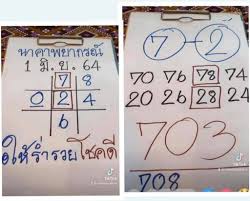 นาคาพยากรณ์
1 มิ.ย. 64
7 8
0 2 4
6
ให้ร่ำรวยโชคดี
TikTok
7-2
70 76 78 74
20 26 28 24
703
708
TikTok